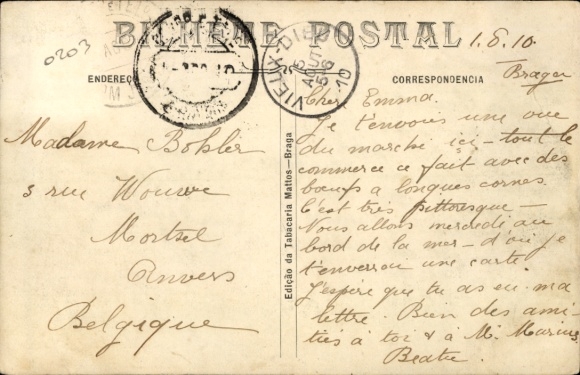 BILHETE POSTAL
0203
1.8.10
Braga
ENDEREÇO
CORRESPONDENCIA
VIEUX-DIEU
5
AOUT
5-6
10
Madame Bohler
3 rue Wouwe
Mortsel
Anvers
Belgique
Edição da Tabacaria Mattos—Braga
Chère Emma.
Je t'envoies une vue
du marché ici — tout le
commerce ce fait avec des
bœufs à longues cornes
C'est très pittoresque —
Nous allons mercredi au
bord de la mer — d'où je
t'enverrai une carte.
J'espère que tu as eu ma
lettre. Bien des ami-
tiés à toi & à M. Marius